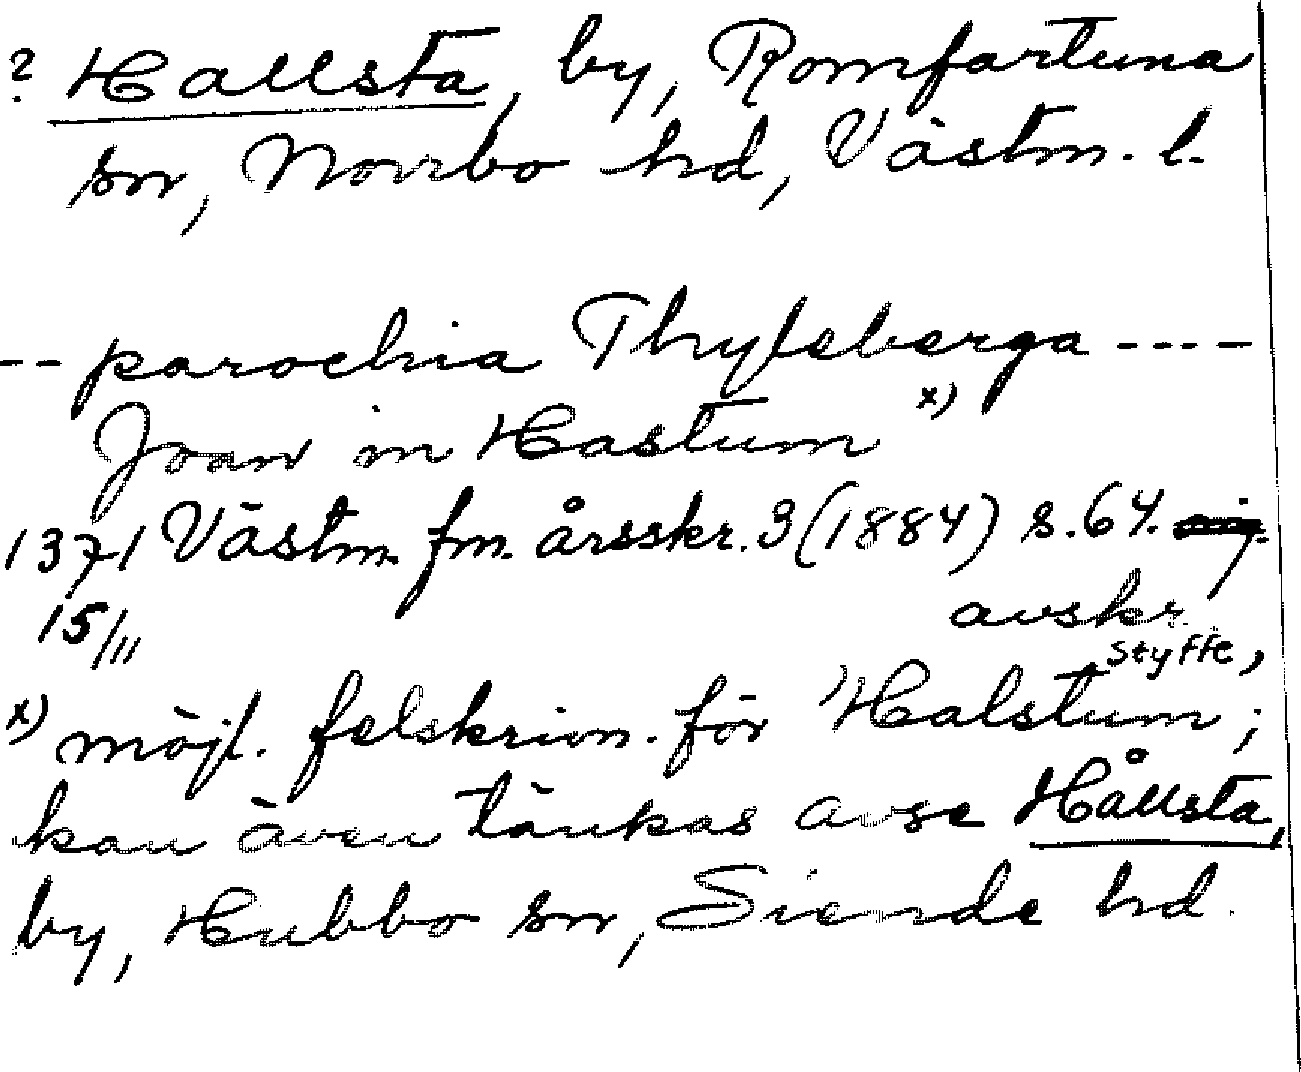 ? Hallsta, by, Romfartuna
sn, Norrbo hd, Västm. l.
-- parochia Thyleberga ----
Joan in Hastum x)
1371 Västm. fm. årsskr. 3 (1884) s. 64.
15/11 avskr.
Styffe,
x) möjl. felskrivn. för Halstum;
kan även tänkas avse Hållsta,
by, Hubbo sn, Siende hd.